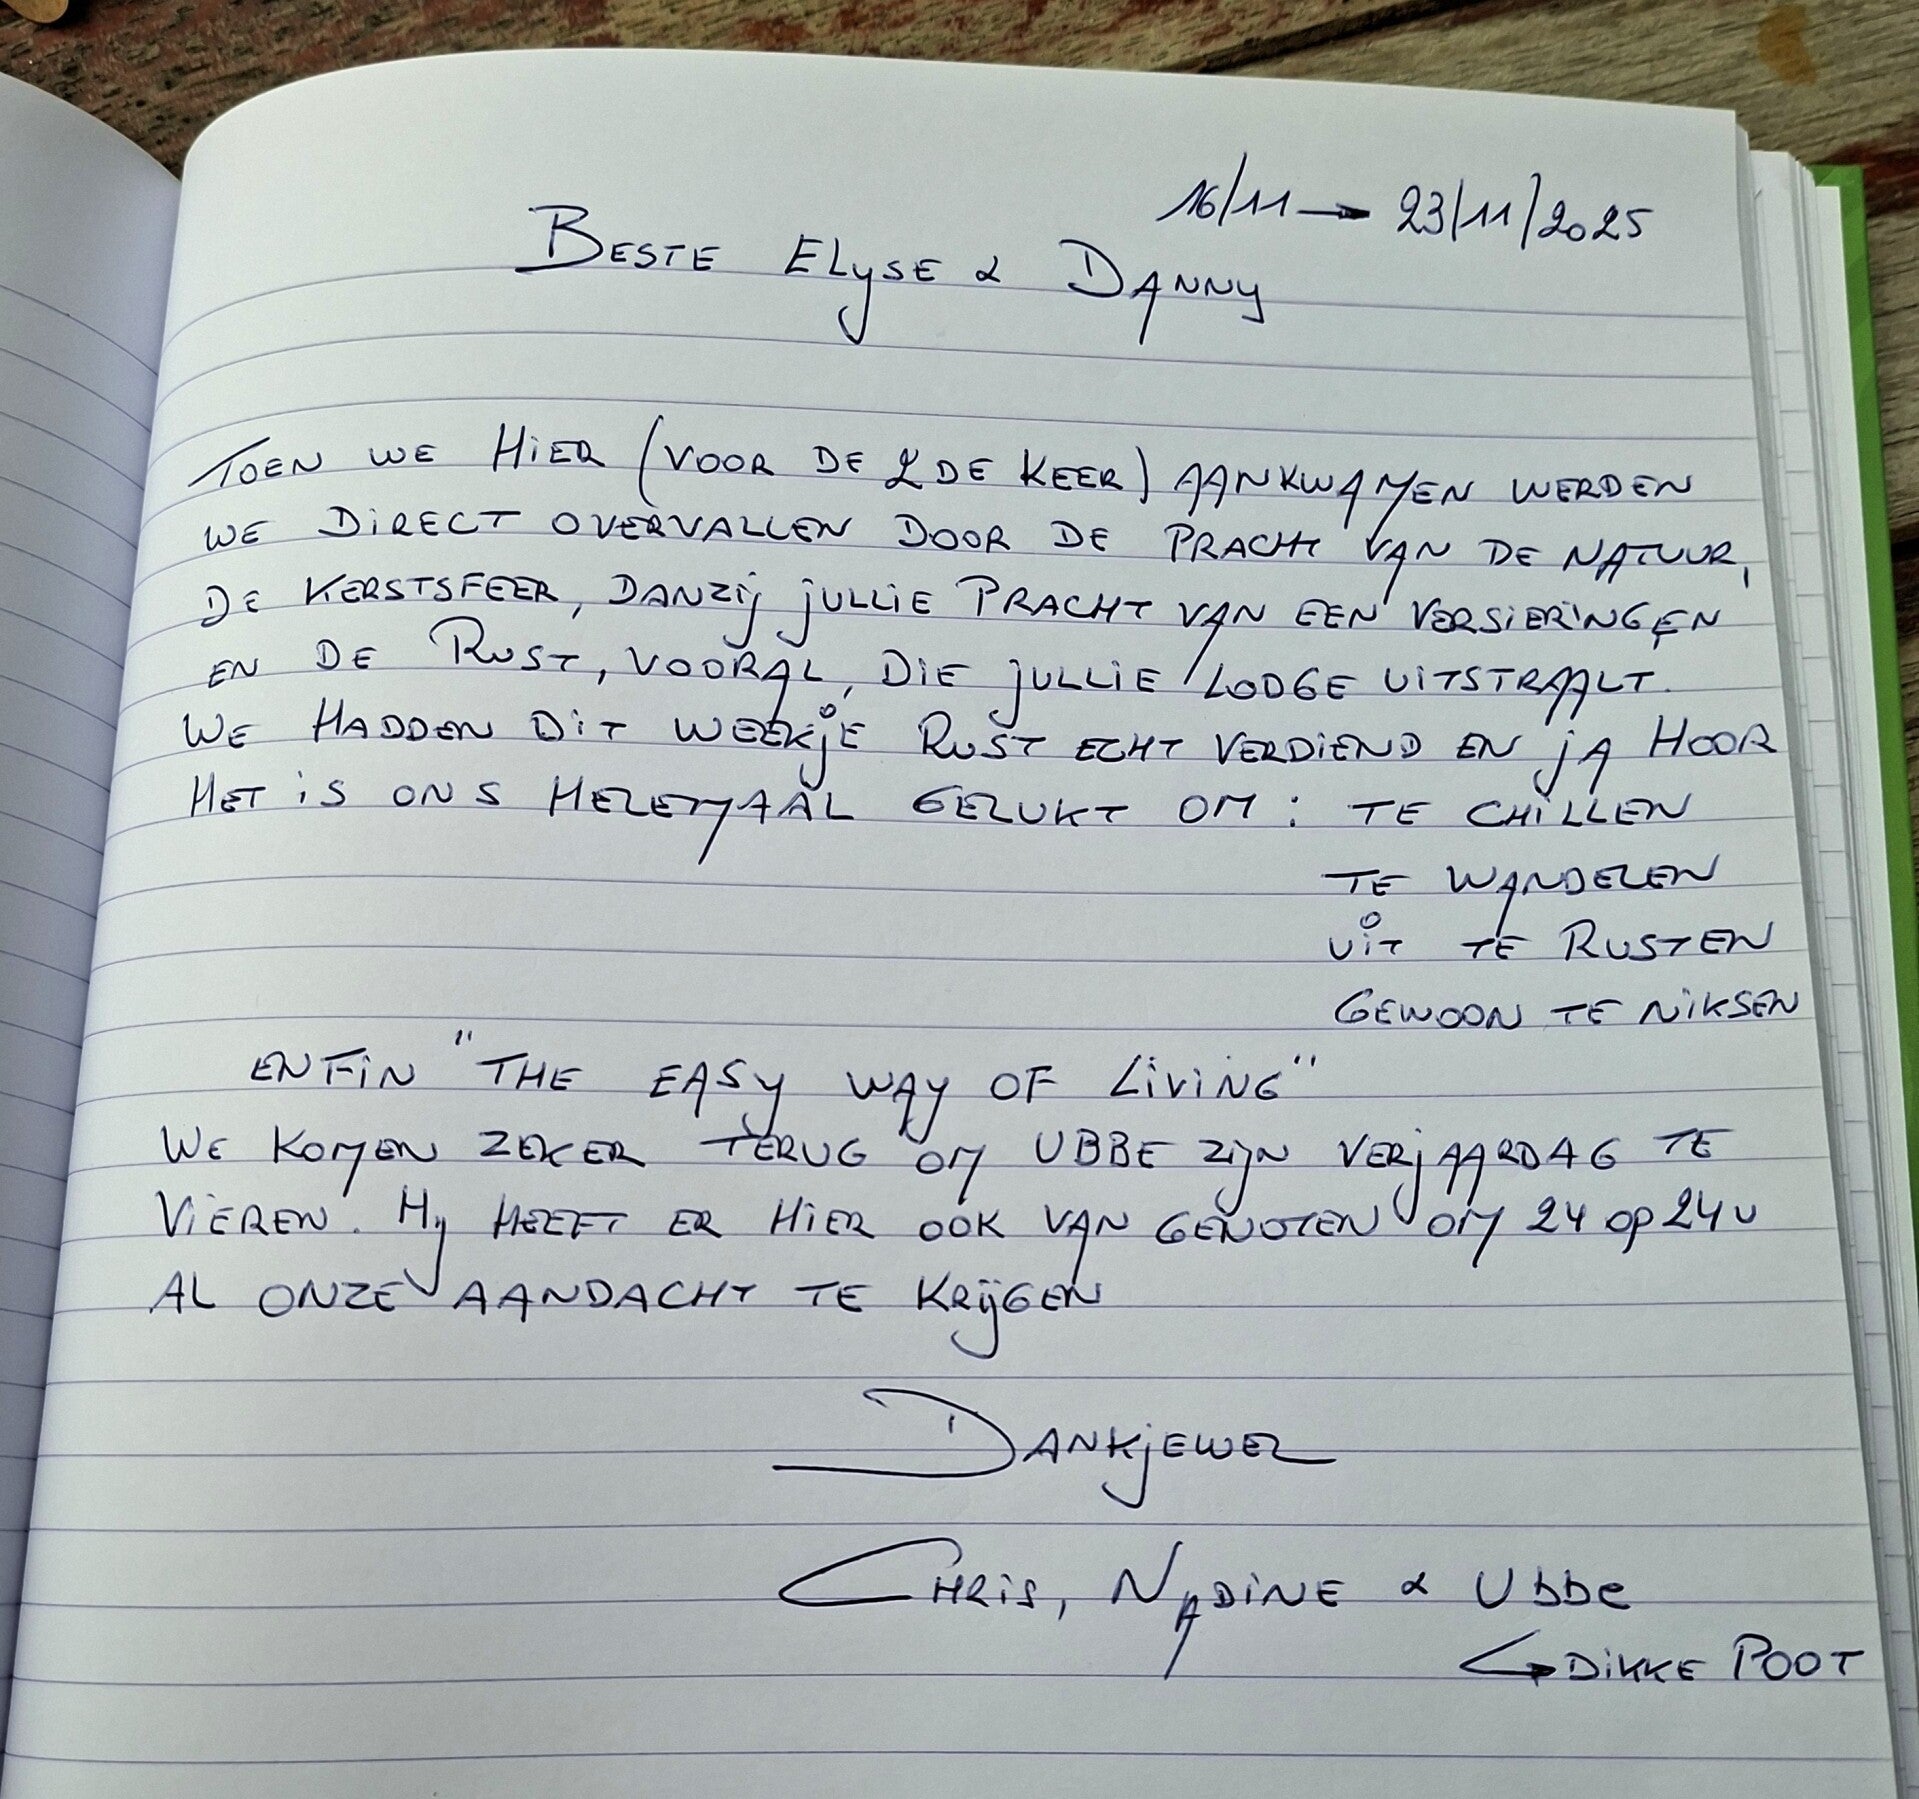 16/11 → 23/11/2025
BESTE ELYSE & DANNY
TOEN WE HIER (VOOR DE 2DE KEER) AANKWAMEN WERDEN
WE DIRECT OVERVALLEN DOOR DE PRACHT VAN DE NATUUR,
DE KERSTSFEER, DANZIJ JULLIE PRACHT VAN EEN VERSIERINGEN
EN DE RUST, VOORAL, DIE JULLIE LODGE UITSTRAALT.
WE HADDEN DIT WEEKJE RUST ECHT VERDIEND EN JA HOOR
HET IS ONS HELEMAAL GELUKT OM : TE CHILLEN
TE WANDELEN
UIT TE RUSTEN
GEWOON TE NIKSEN
ENFIN "THE EASY WAY OF LIVING"
WE KOMEN ZEKER TERUG OM UBBE ZIJN VERJAARDAG TE
VIEREN. HIJ HEEFT ER HIER OOK VAN GENOTEN OM 24 OP 24U
AL ONZE AANDACHT TE KRIJGEN
DANKJEWEL
CHRIS, NADINE & Ubbe
↳ DIKKE POOT